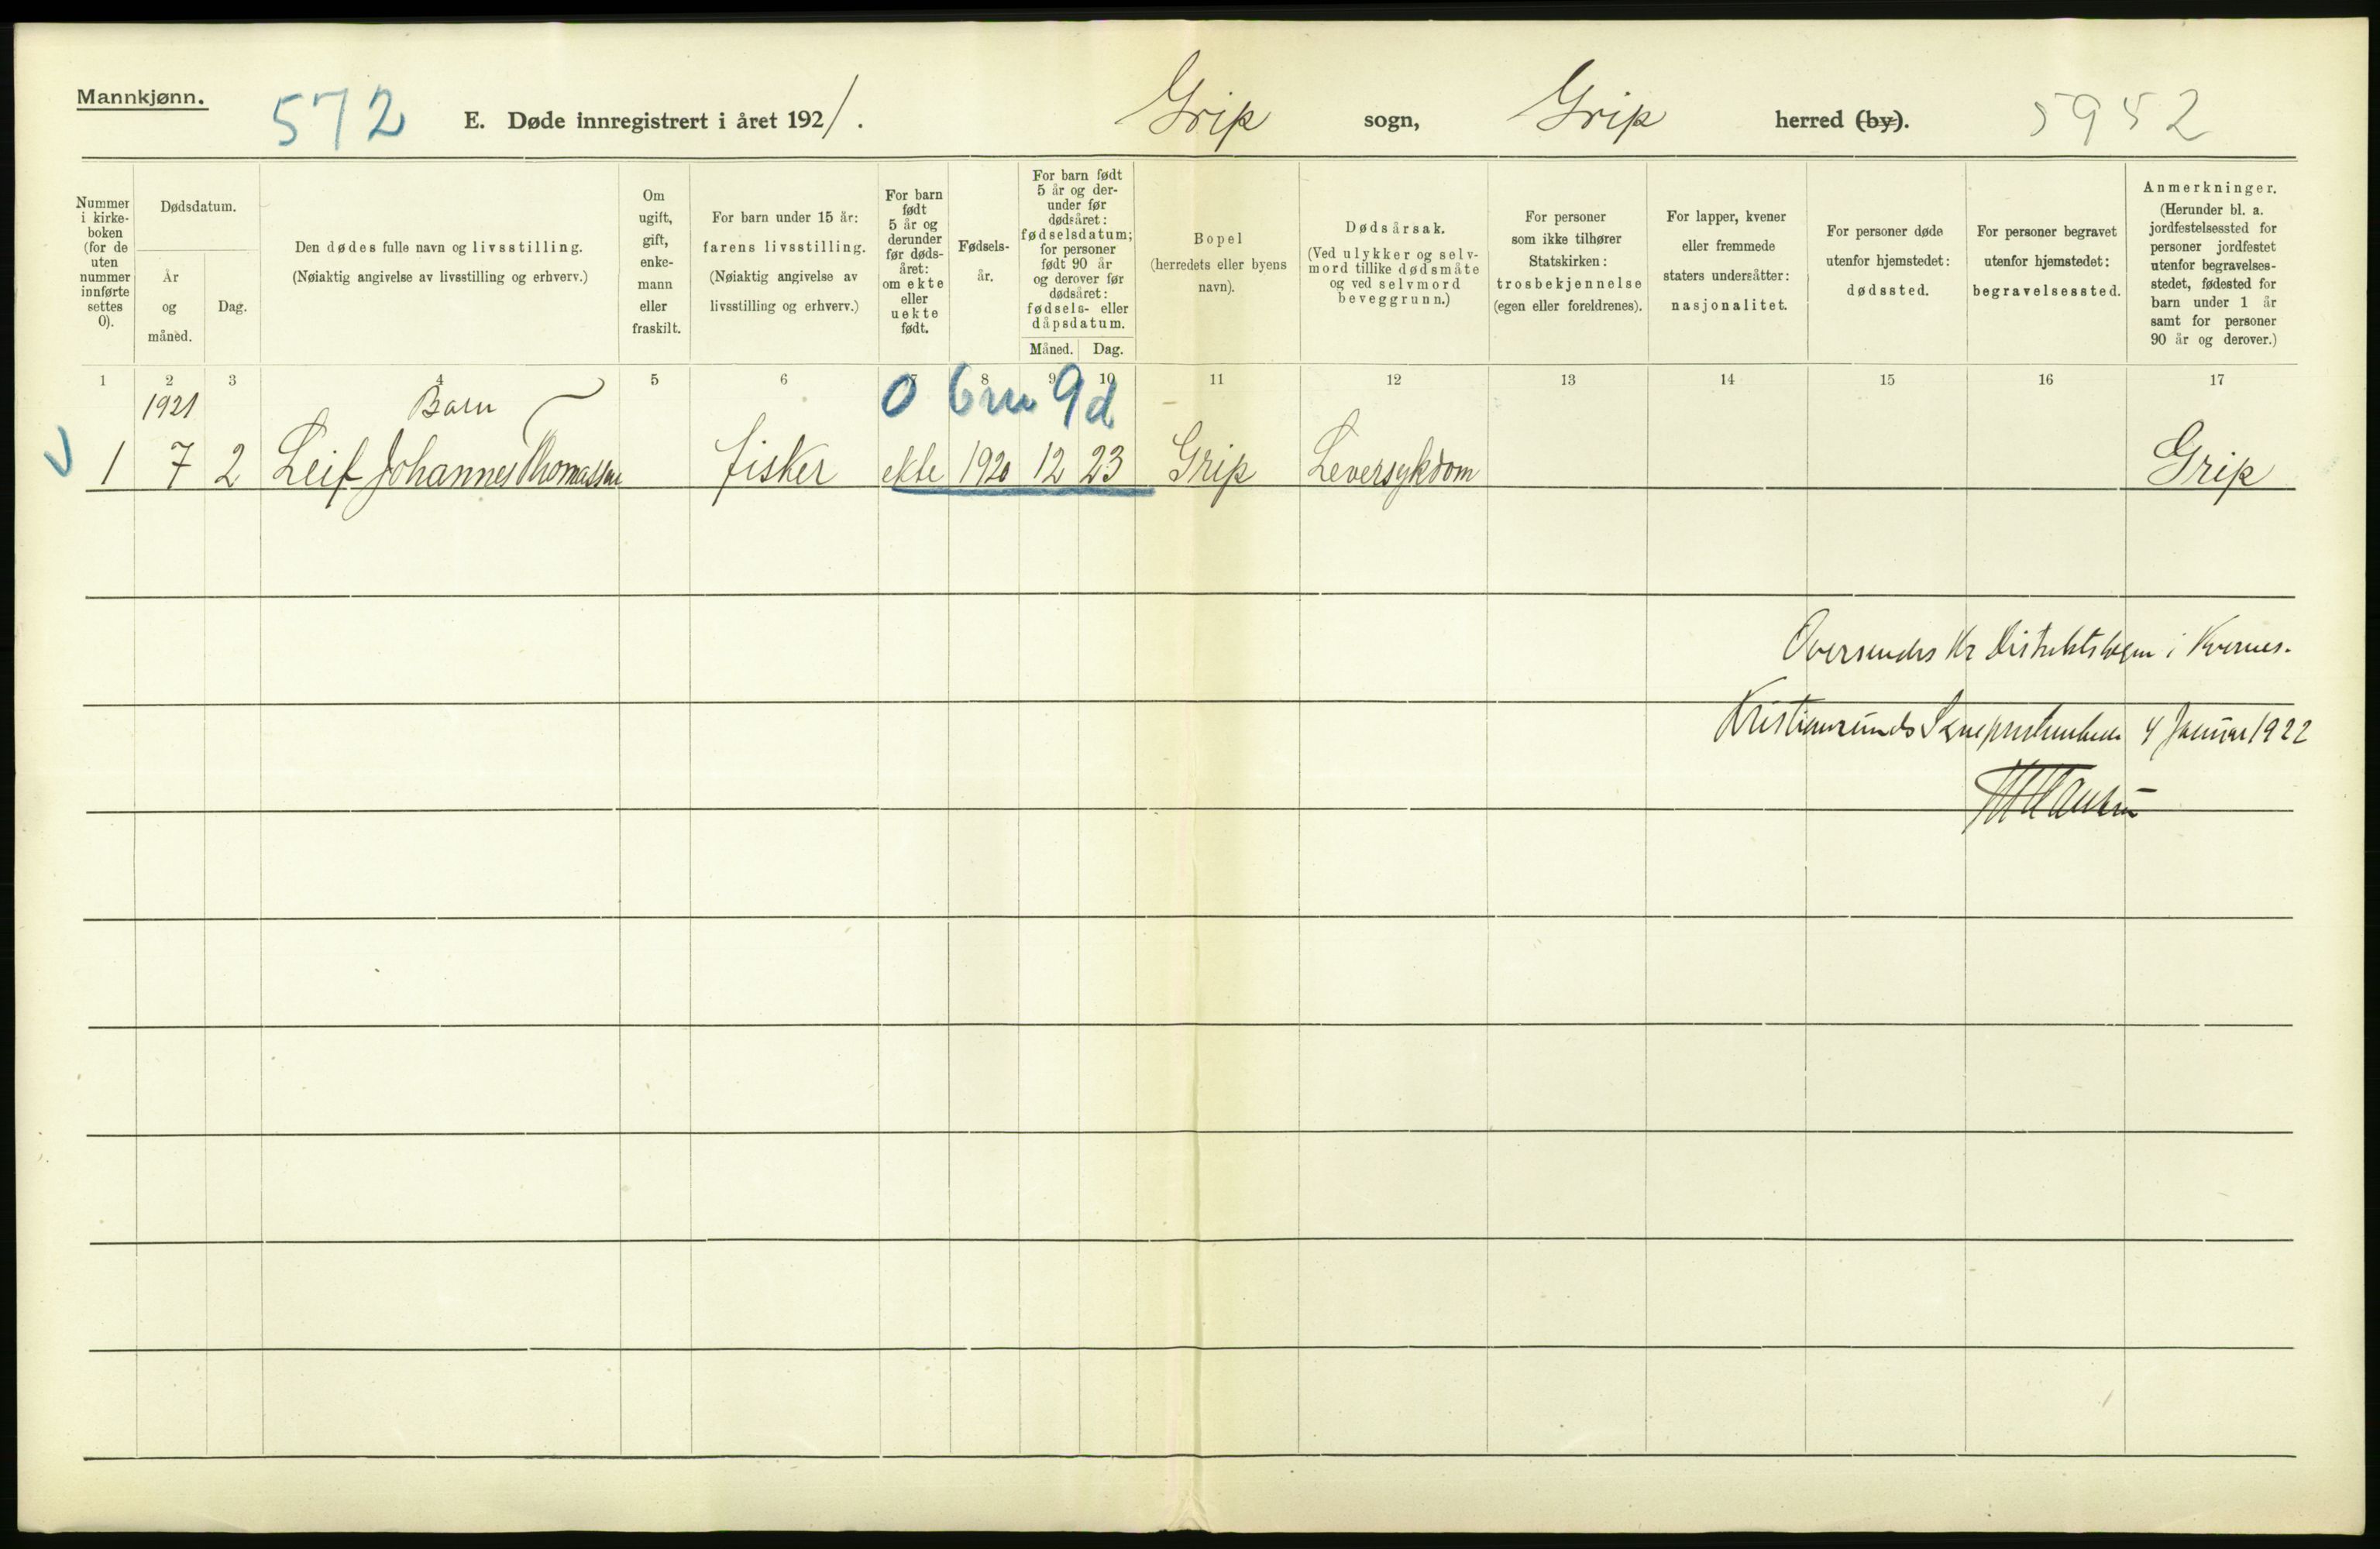 Mannkjønn.
572
E. Døde innregistrert i året 1921.
Grip sogn, Grip herred (by).
5952
Nummer
i kirke-
boken
(for de
uten
nummer
innførte
settes
0).
Dødsdatum.
År
og
måned.
Dag.
Den dødes fulle navn og livsstilling.
(Nøiaktig angivelse av livsstilling og erhverv.)
Om
ugift,
gift,
enke-
mann
eller
fraskilt.
For barn under 15 år:
farens livsstilling.
(Nøiaktig angivelse av
livsstilling og erhverv.)
For barn
født
5 år og
derunder
før døds-
året:
om ekte
eller
uekte
født.
Fødsels-
år.
For barn født
5 år og der-
under før
dødsåret:
fødselsdatum;
for personer
født 90 år
og derover før
dødsåret:
fødsels- eller
dåpsdatum.
Måned. Dag.
Bopel
(herredets eller byens
navn).
Dødsårsak.
(Ved ulykker og selv-
mord tillike dødsmåte
og ved selvmord
beveggrunn.)
For personer
som ikke tilhører
Statskirken:
trosbekjennelse
(egen eller foreldrenes).
For lapper, kvener
eller fremmede
staters undersåtter:
nasjonalitet.
For personer døde
utenfor hjemstedet:
dødssted.
For personer begravet
utenfor hjemstedet:
begravelsessted.
Anmerkninger.
(Herunder bl. a.
jordfestelsessted for
personer jordfestet
utenfor begravelses-
stedet, fødested for
barn under 1 år
samt for personer
90 år og derover.)
1 2 3 4 5 6 7 8 9 10 11 12 13 14 15 16 17
1921 Barn 0 6m 9d
1 7 2 Leif Johannes Thomassen fisker ekte 1920 12 23 Grip Leversykdom Grip
Oversendes Hr Distriktslægen i Kvernes.
Kristiansunds Sogneprestembede 4 Januar 1922